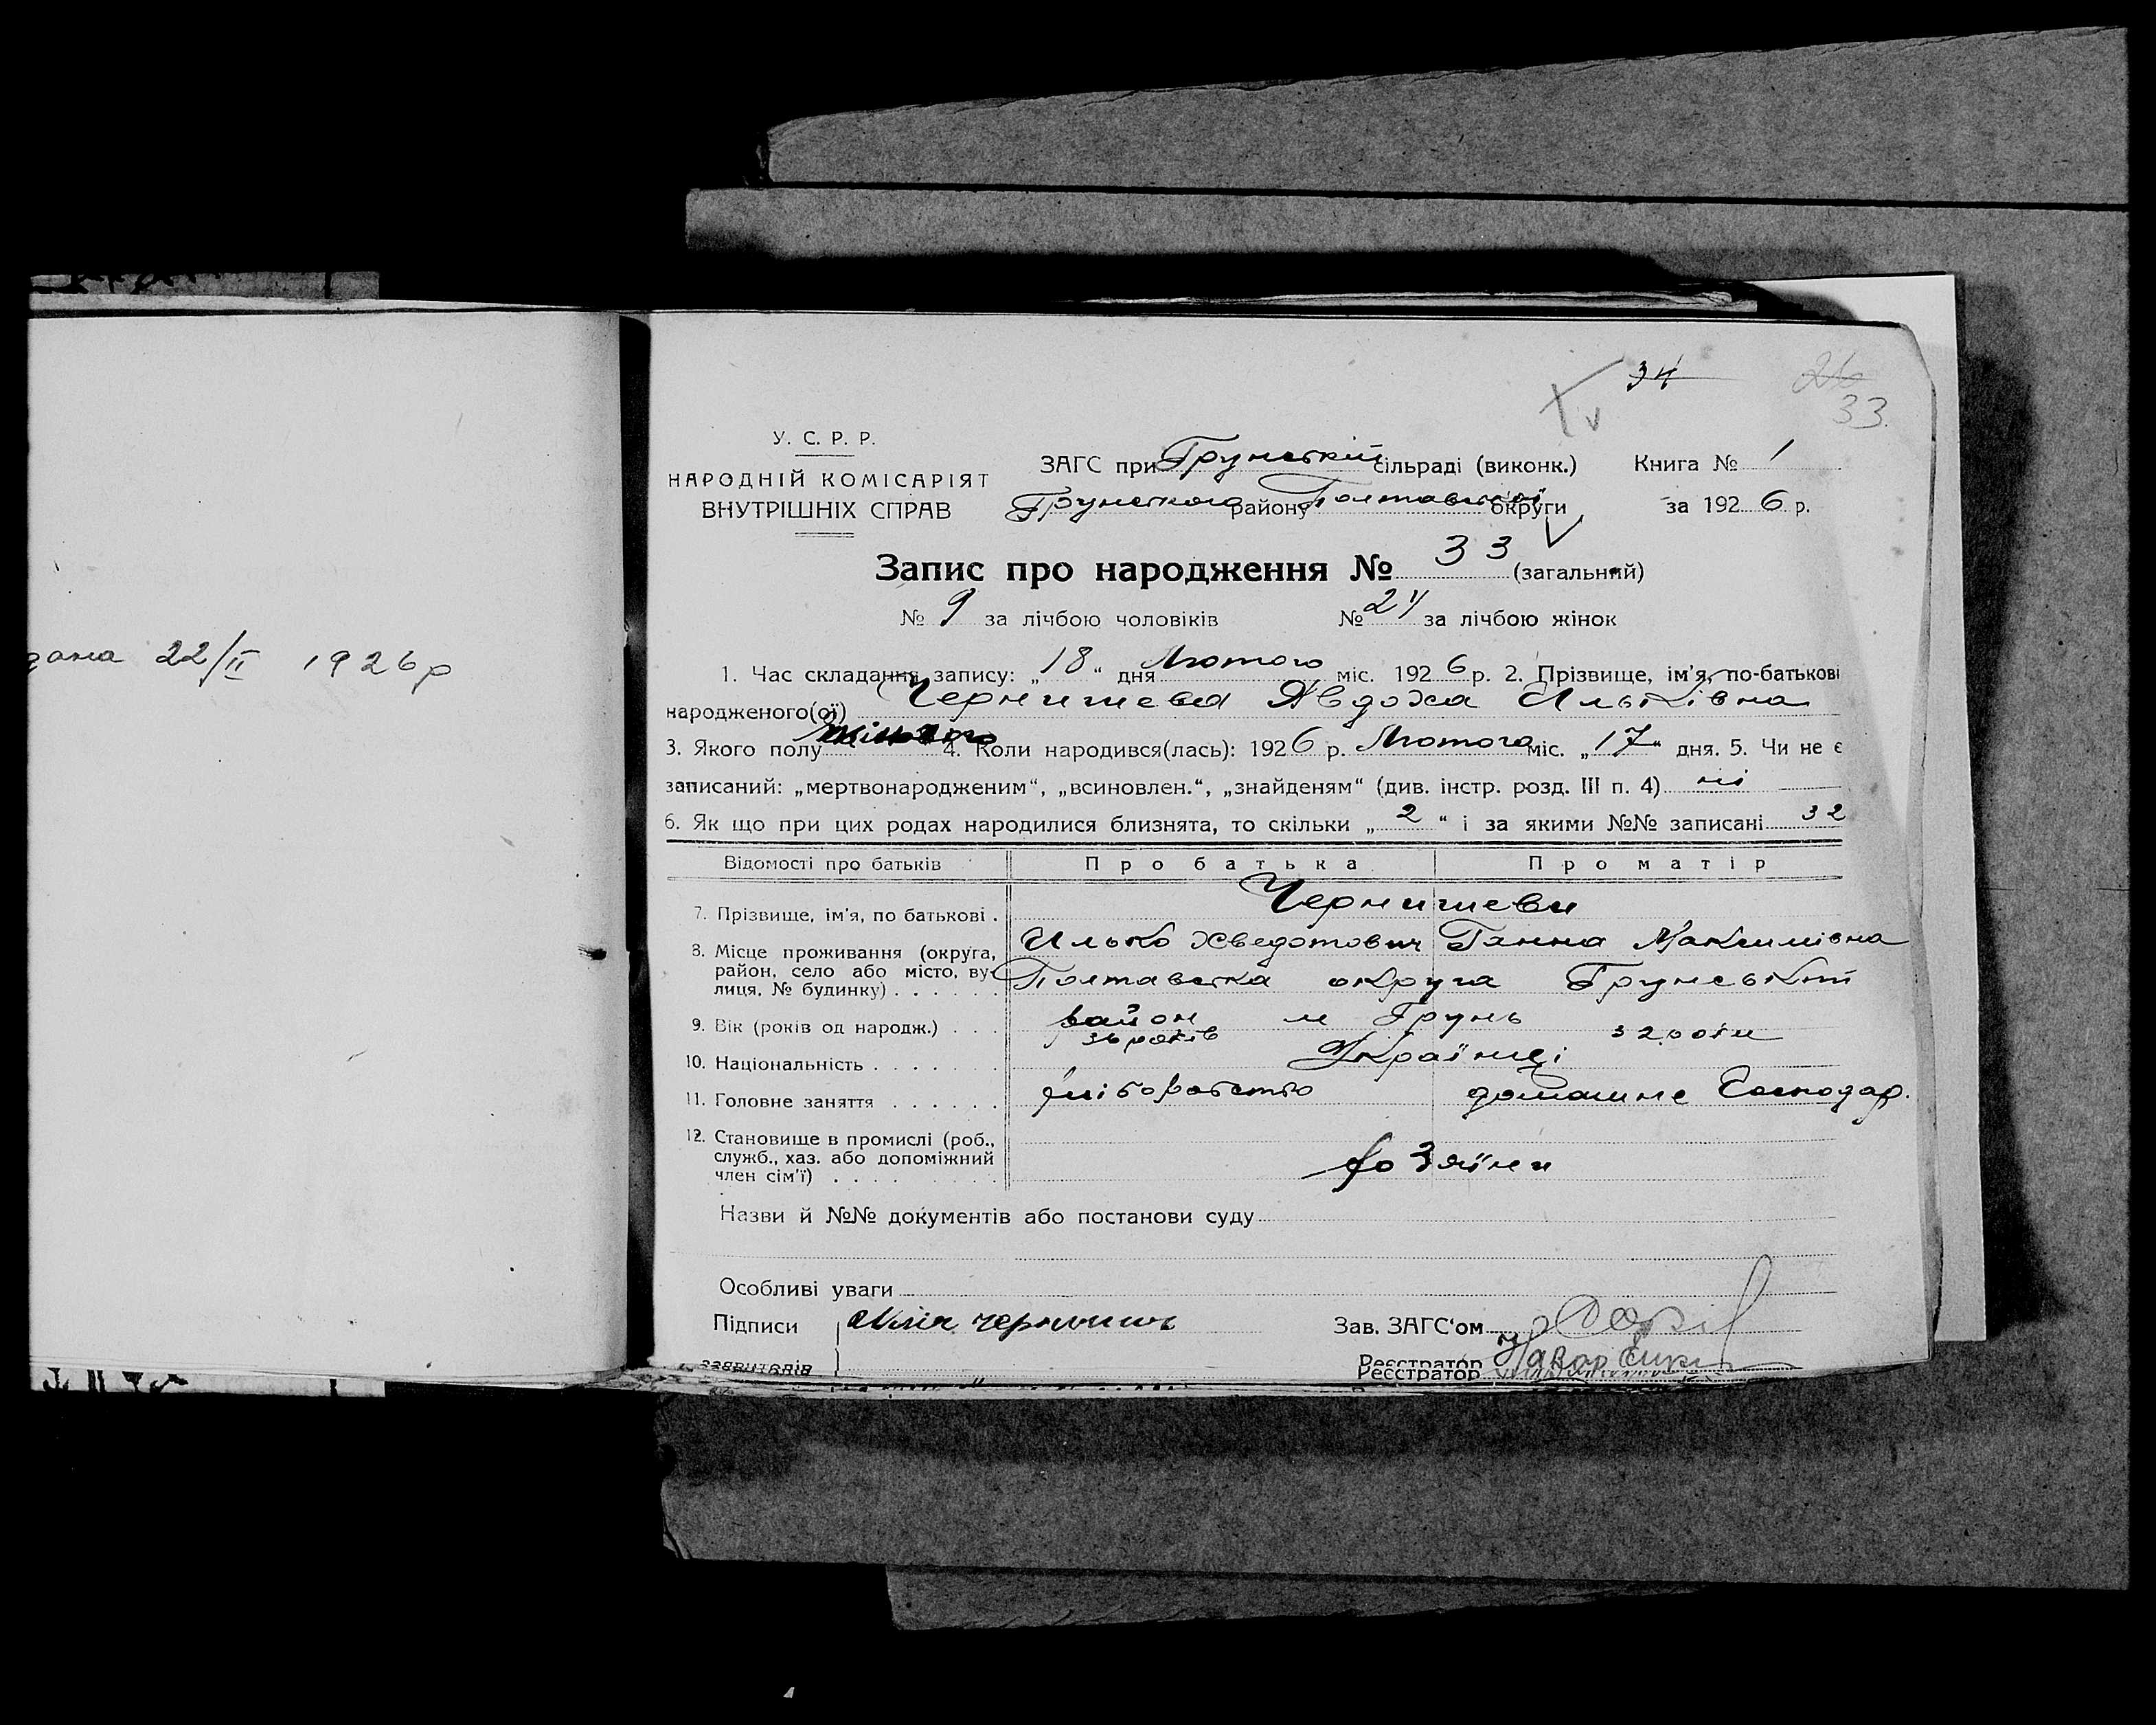 дана 22/II 1926 р
34
26
33
У. С. Р. Р.
НАРОДНІЙ КОМІСАРІЯТ
ВНУТРІШНІХ СПРАВ
ЗАГС при Грунській сільраді (виконк.)
Грунського району Полтавської округи
Книга № 1
за 1926 р.
Запис про народження № 33 (загальний)
№ 9 за лічбою чоловіків № 24 за лічбою жінок
1. Час складання запису: „18“ дня Лютого міс. 1926 р. 2. Прізвище, ім'я, по-батькові
народженого(ої) Чернишева Явдоха Ильківна
3. Якого полу жіночого 4. Коли народився(лась): 1926 р. Лютого міс. „17“ дня. 5. Чи не є
записаний: „мертвонародженим“, „всиновлен.“, „знайденям“ (див. інстр. розд. III п. 4) ні
6. Як що при цих родах народилися близнята, то скільки „2“ і за якими №№ записані 32
Відомості про батьків Про батька Про матір
7. Прізвище, ім'я, по батькові . Чернишеви
Илько Хведотович Ганна Максимівна
8. Місце проживання (округа,
район, село або місто, ву-
лиця, № будинку) . . . . . . Полтавська округа Грунський
район м Грунь
9. Вік (років од народж.) . . . 36 років 32 роки
10. Національність . . . . . . . Українці
11. Головне заняття . . . . . . хліборобство домашнє господар.
12. Становище в промислі (роб.,
служб., хаз. або допоміжний
член сім'ї) . . . . . . . . . хозяїни
Назви й №№ документів або постанови суду
Особливі уваги
Підписи
заявителів
Зав. ЗАГС'ом
Реєстратор
Реєстратор